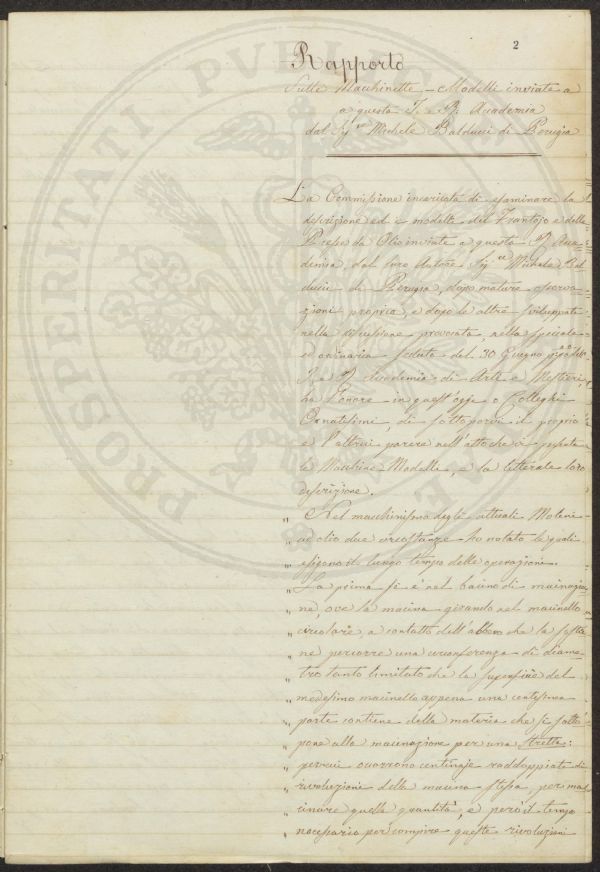 2
Rapporto
Sulle Macchinette - Modelli inviate a
a questa I. R. Accademia
dal Sig.re Michele Balducci di Perugia
La Commissione incaricata di esaminare la
descrizione ed i modelli del Frantojo e delle
Presse da Olio inviate a questa R. Acca=
demia dal loro Autore Sig.re Michele Bal
ducci di Perugia, dopo mature osserva
zioni proprie, e dopo le altre sviluppate
nella discussione provocata nella speciale
ordinaria seduta del 30 Giugno
I. e R. Accademia di Arti e Mestieri,
ha l'onore in quest'oggi o Colleghi
Ornatissimi, di sottoporvi il proprio
e l'altrui parere nell'atto che vi presenta
le Macchine Modelli, e la letterale loro
descrizione.
" Nel macchinismo degli attuali Molini
" ad olio due circostanze ho notato le quali
" esigono il lungo tempo delle operazioni.
" La prima si è nel bacino di macinazio
" ne, ove la macina girando nel macinello
" circolare, a contatto dell'albero che la sostie
" ne percorre una circonferenza di diame
" tro tanto limitato che la superficie del
" medesimo macinello appena una centesima
" parte contiene della materia che si sotto
" pone alla macinazione per una stretta:
" percui occorrono centinaje raddoppiate di
" rivoluzione della macina stessa, per ma
" cinare quella quantità, e però il tempo
" necessario per compire queste rivoluzioni
PROSPERITATI PVBLICAE